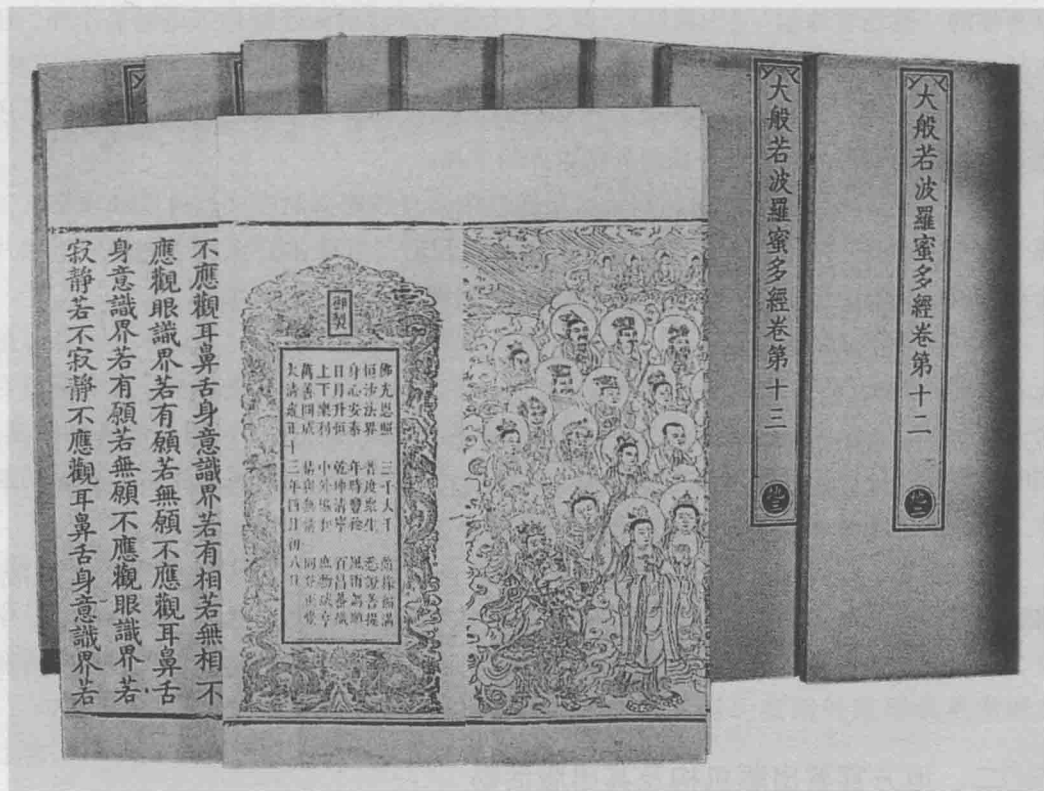 大般若波羅蜜多經卷第十二
地二
大般若波羅蜜多經卷第十三
地三
御製
佛光恩照 三千大千
恒沙法界 普度眾生 悉證菩提
身心安泰 年時豐稔 風雨調順
日月升恒 乾坤清寧 百昌蕃熾
上下樂利 中外協和 庶物咸亨
萬善同成 情與無情 同登正覺
大清雍正十三年四月初八日
不應觀耳鼻舌身意識界若有相若無相不
應觀眼識界若有願若無願不應觀耳鼻舌
身意識界若有願若無願不應觀眼識界若
寂靜若不寂靜不應觀耳鼻舌身意識界若